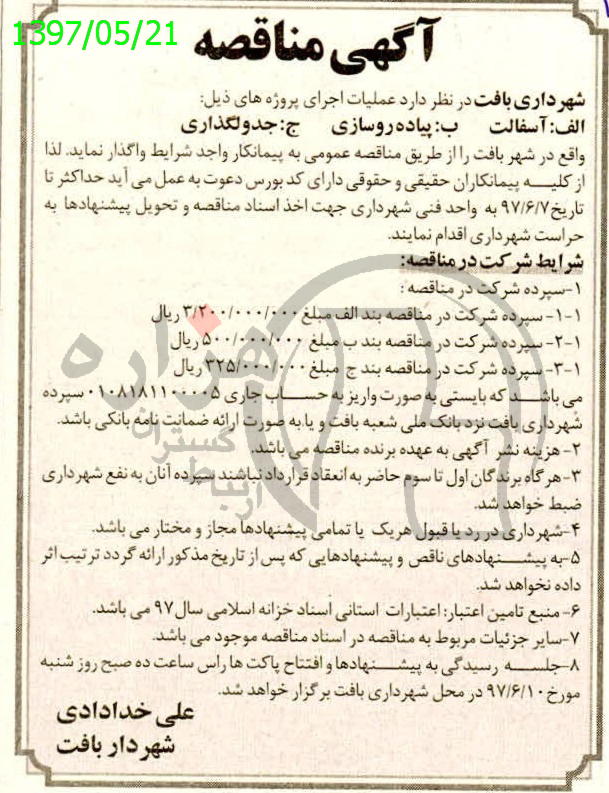 1397/05/21
آگهی مناقصه
شهرداری بافت در نظر دارد عملیات اجرای پروژه های ذیل:
الف: آسفالت ب: پیاده روسازی ج: جدولگذاری
واقع در شهر بافت را از طریق مناقصه عمومی به پیمانکار واجد شرایط واگذار نماید. لذا
از کلیه پیمانکاران حقیقی و حقوقی دارای کد بورس دعوت به عمل می آید حداکثر تا
تاریخ ۹۷/۶/۷ به واحد فنی شهرداری جهت اخذ اسناد مناقصه و تحویل پیشنهادها به
حراست شهرداری اقدام نمایند.
شرایط شرکت در مناقصه:
۱-سپرده شرکت در مناقصه :
۱-۱- سپرده شرکت در مناقصه بند الف مبلغ ۳/۲۰۰/۰۰۰/۰۰۰ ریال
۱-۲- سپرده شرکت در مناقصه بند ب مبلغ ۵۰۰/۰۰۰/۰۰۰ ریال
۱-۳- سپرده شرکت در مناقصه بند ج مبلغ ۳۲۵/۰۰۰/۰۰۰ ریال
می باشد که بایستی به صورت واریز به حساب جاری ۰۱۰۸۱۸۱۱۰۰۰۰۵ سپرده
شهرداری بافت نزد بانک ملی شعبه بافت و یا به صورت ارائه ضمانت نامه بانکی باشد.
۲- هزینه نشر آگهی به عهده برنده مناقصه می باشد.
۳-هر گاه برندگان اول تا سوم حاضر به انعقاد قرارداد نباشند سپرده آنان به نفع شهرداری
ضبط خواهد شد.
۴-شهرداری در رد یا قبول هریک یا تمامی پیشنهادها مجاز و مختار می باشد.
۵-به پیشنهادهای ناقص و پیشنهادهایی که پس از تاریخ مذکور ارائه گردد ترتیب اثر
داده نخواهد شد.
۶- منبع تامین اعتبار: اعتبارات استانی اسناد خزانه اسلامی سال ۹۷ می باشد.
۷-سایر جزئیات مربوط به مناقصه در اسناد مناقصه موجود می باشد.
۸-جلسه رسیدگی به پیشنهادها و افتتاح پاکت ها راس ساعت ده صبح روز شنبه
مورخ ۹۷/۶/۱۰ در محل شهرداری بافت برگزار خواهد شد.
علی خدادادی
شهردار بافت
هزاره
گستران
ارتباط